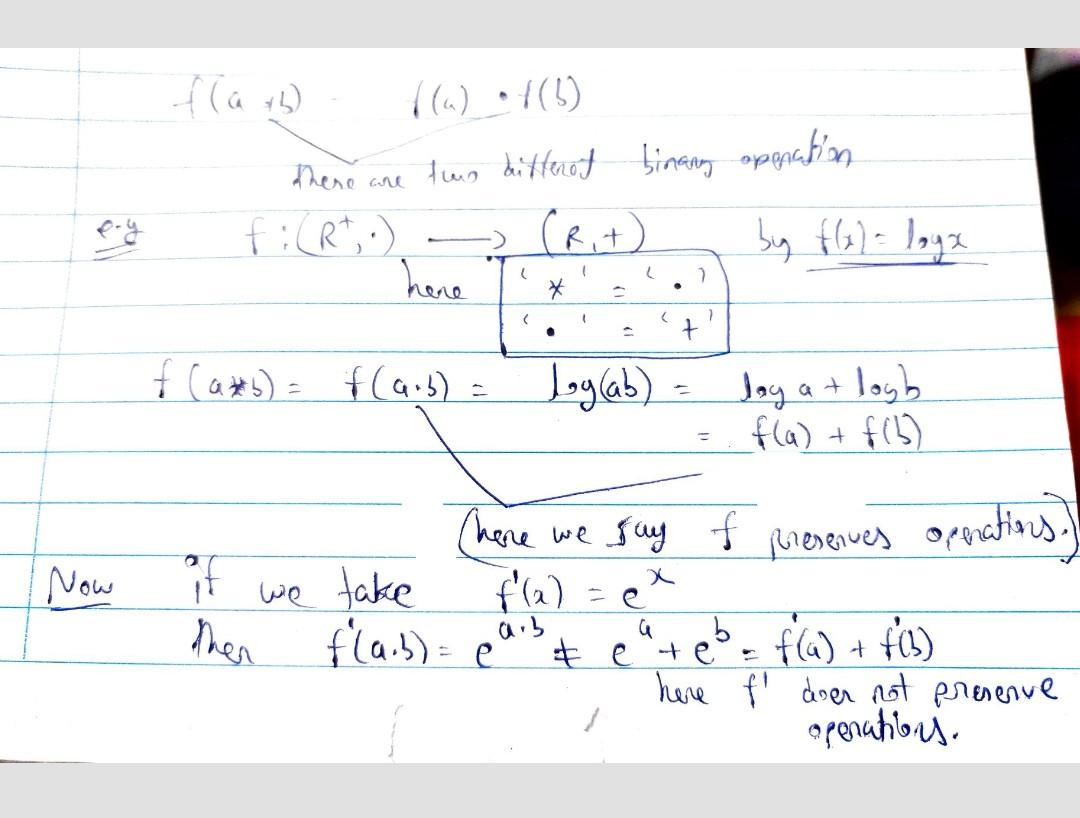 f(a * b) = f(a) • f(b)
There are two different binary operation
e.g f : (R⁺, ·) ⟶ (R, +) by f(x) = log x
here ' * ' = ' • '
' • ' = ' + '
f (a*b) = f(a·b) = log(ab) = log a + log b
= f(a) + f(b)
(here we say f preserves operations.)
Now if we take f'(x) = eˣ
Then f'(a.b) = e^{a.b} ≠ e^a + e^b = f'(a) + f'(b)
here f' does not preserve
operations.